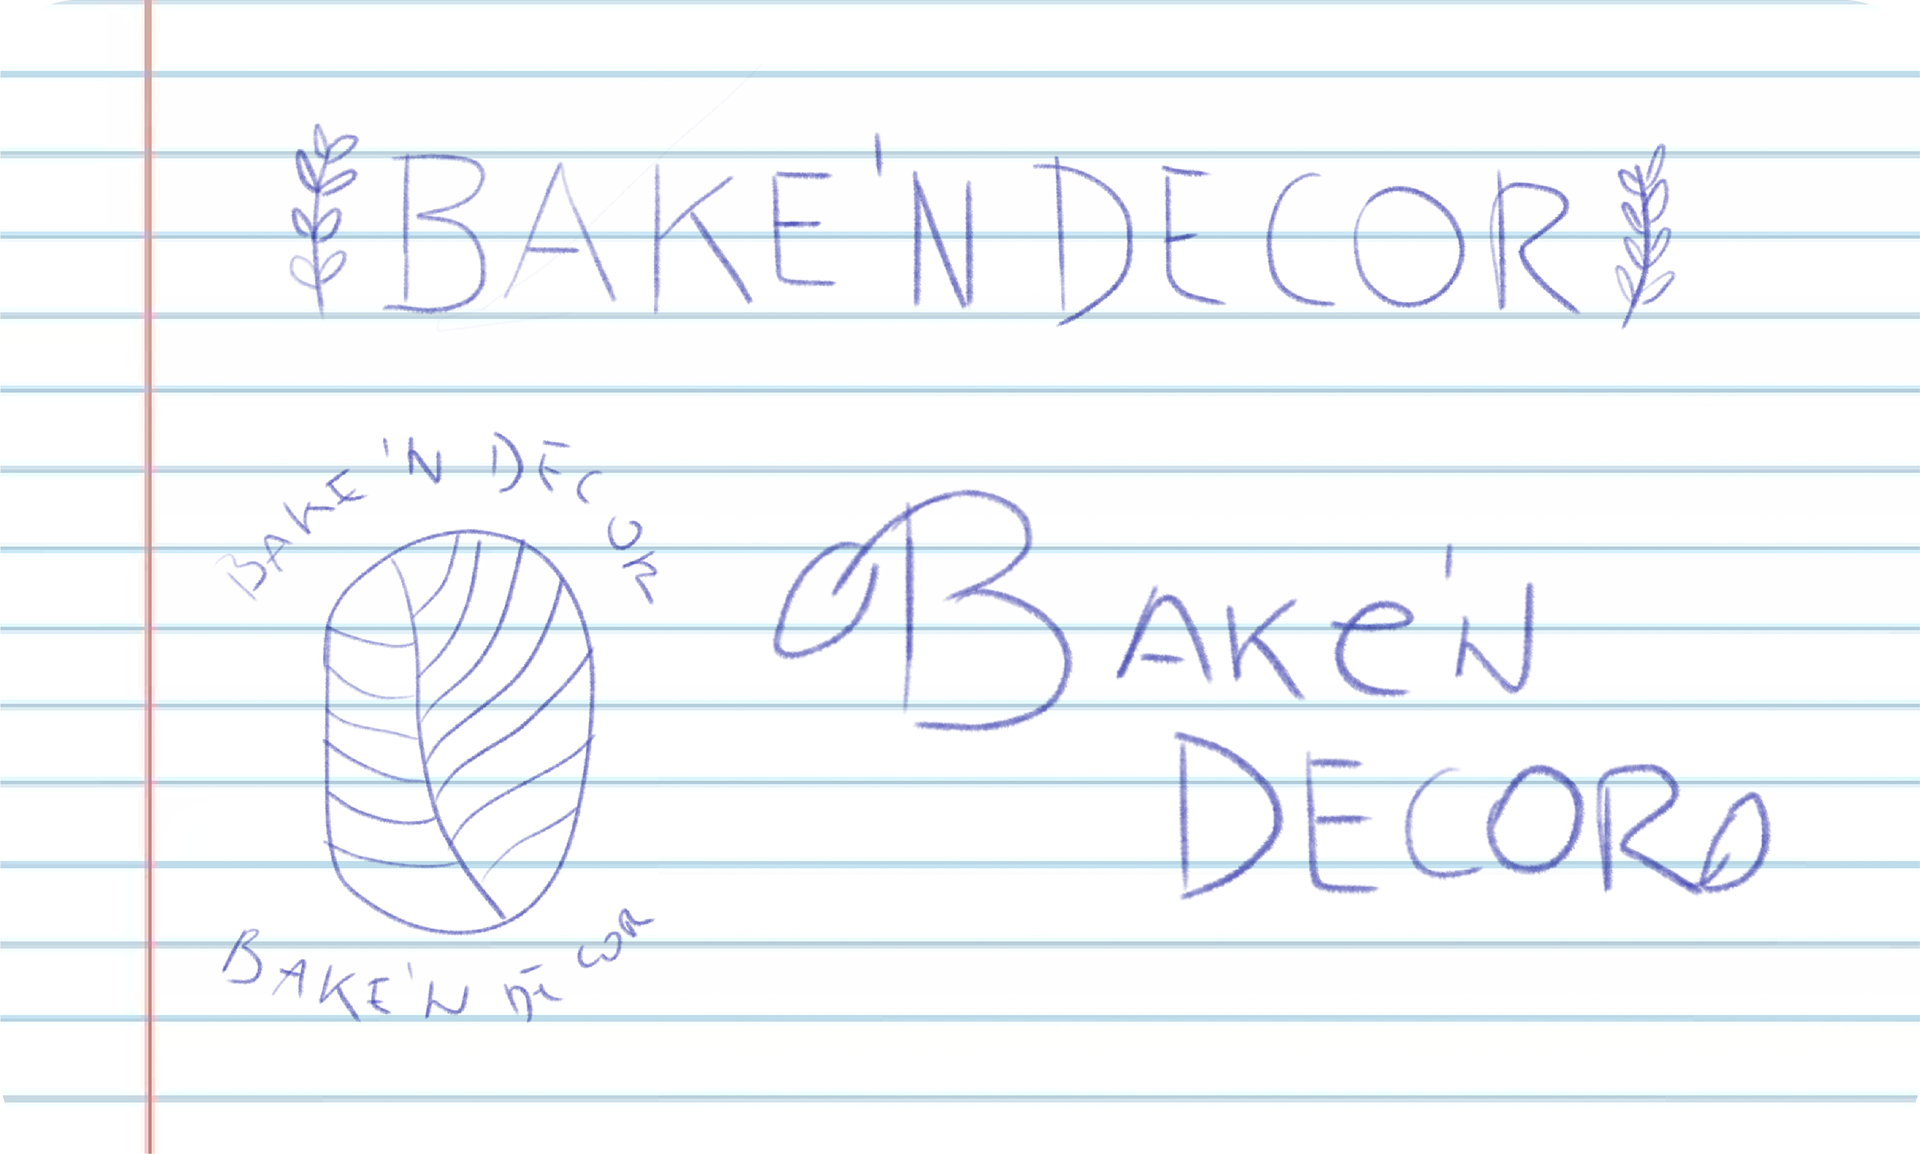 BAKE'N DECOR
BAKE'N DECOR
BAKE'N
DECOR
BAKE'N DECOR